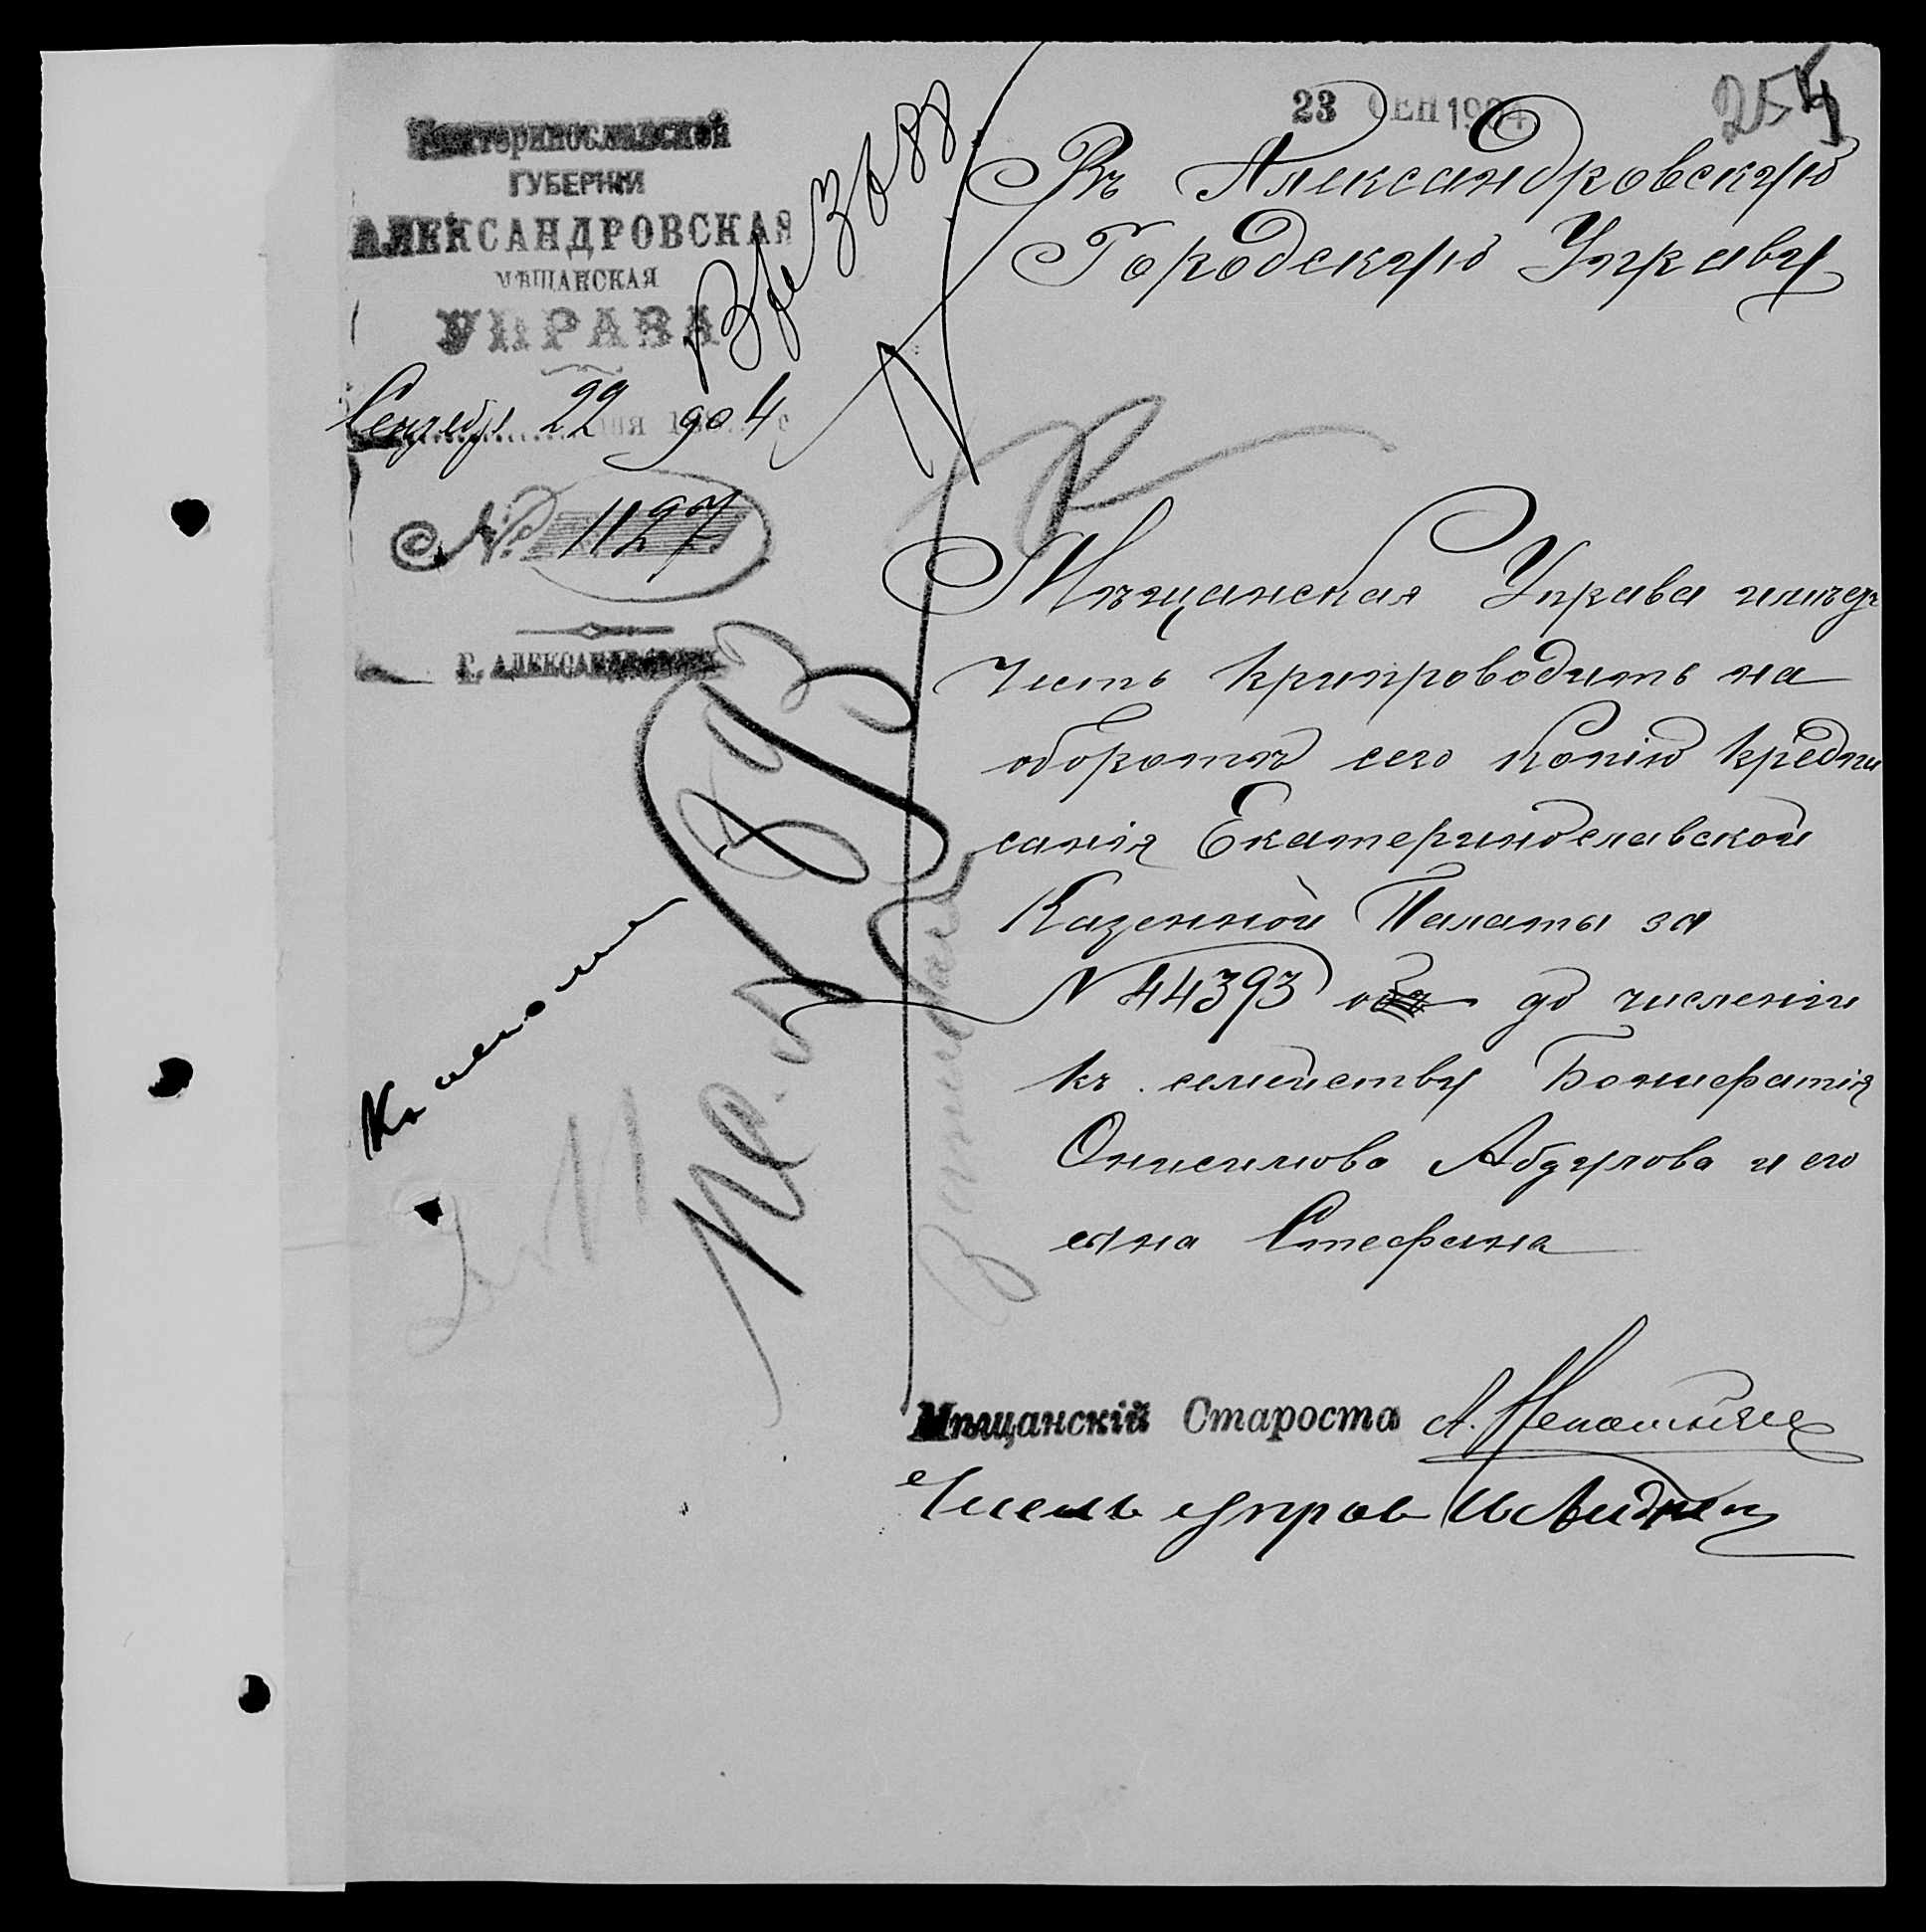 23 СЕН 1904
254
Екатеринославской
ГУБЕРНІИ
АЛЕКСАНДРОВСКАЯ
МѢЩАНСКАЯ
УПРАВА
Сентября 22 дня 1904
№ 1127
Г. АЛЕКСАНДРОВСКЪ
Въ Александровскую
Городскую Управу
Мѣщанская Управа имѣетъ
честь препроводить на
оборотѣ сего копію предпи
санія Екатеринославской
Казенной Палаты за
N 44393 о до численіи
къ семейству Бонифатія
Онисимова Абдулова и его
сына Стефана
Мѣщанскій Староста А.
Члень управ